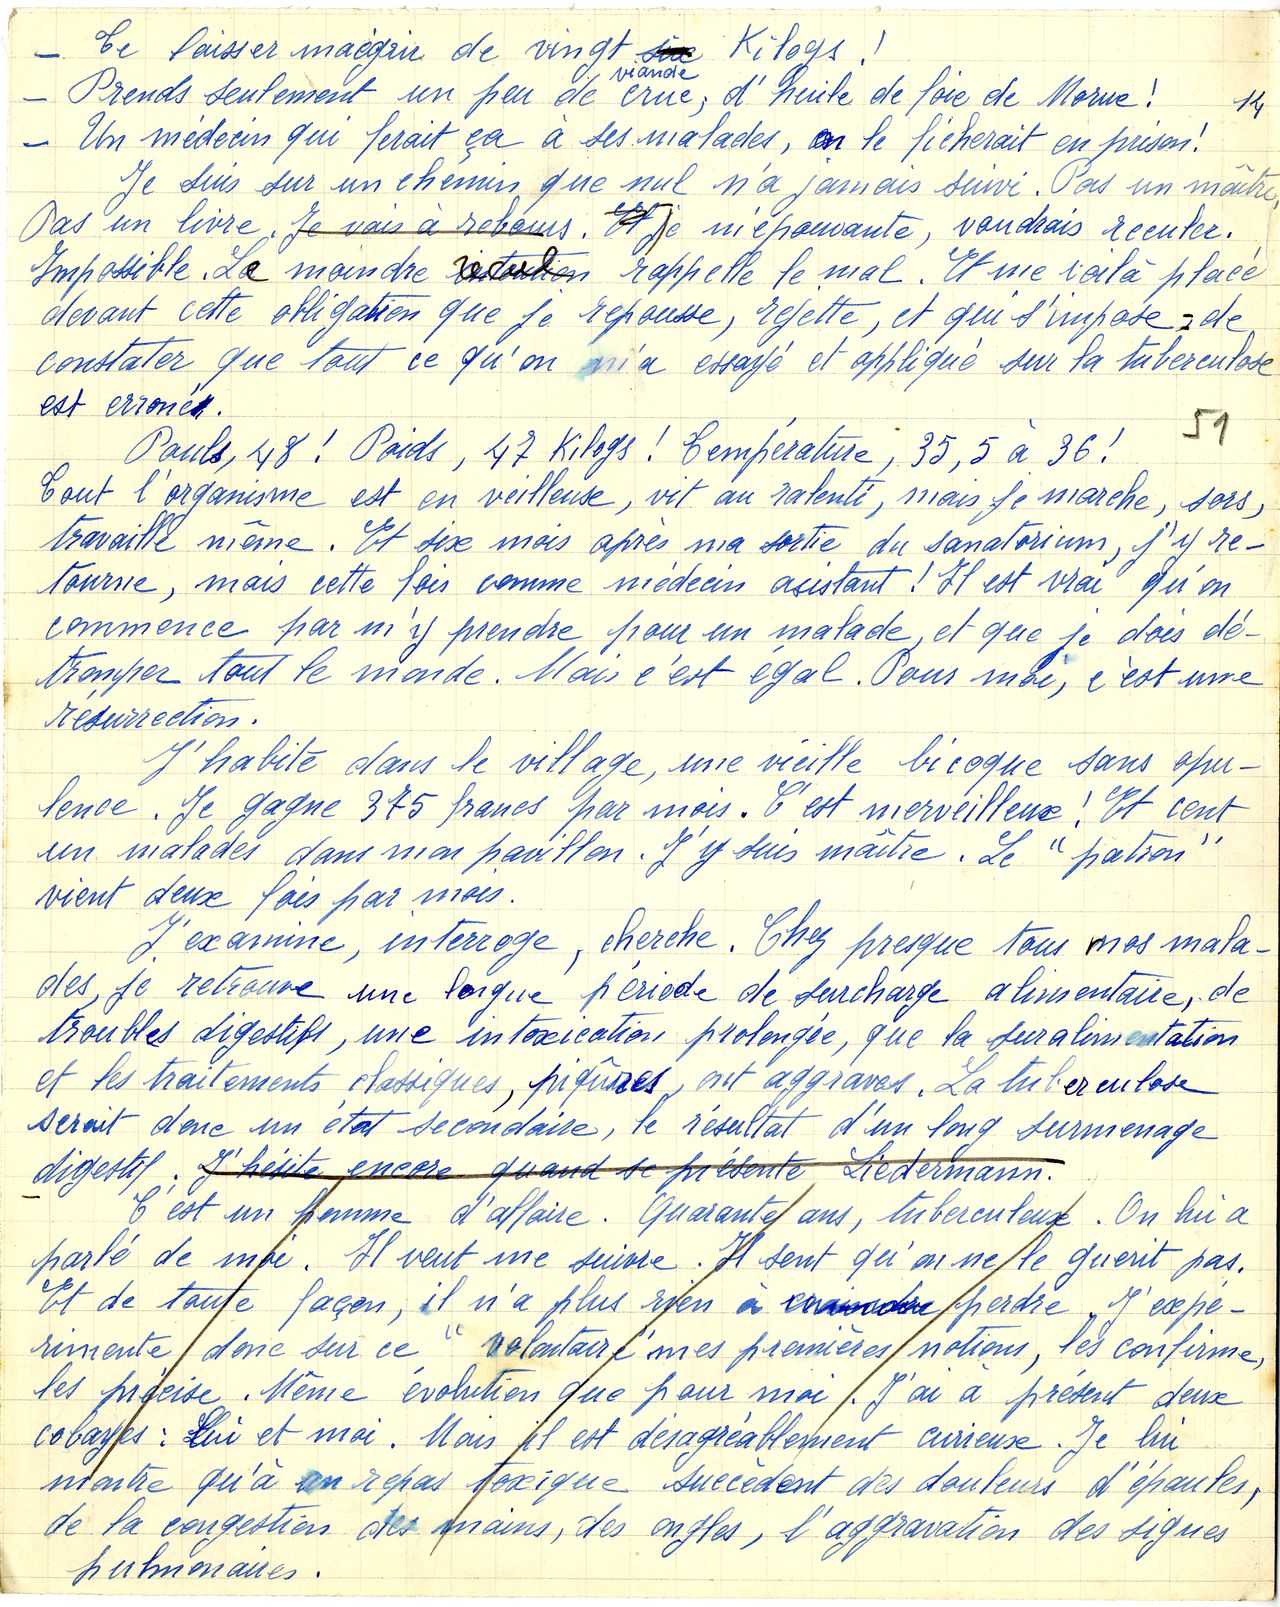 – Te laisser maigrir de vingt six Kilogs !
viande
– Prends seulement un peu de crue, d'huile de foie de Morue !
14
– Un médecin qui ferait ça à ses malades, on le ficherait en prison !
Je suis sur un chemin que nul n'a jamais suivi. Pas un maître,
Pas un livre. Je vais à rebours. Et je m'épouvante, voudrais reculer.
Impossible. Le moindre recul rappelle le mal. Et me voilà placé
devant cette obligation que je repousse, rejette, et qui s'impose : de
constater que tout ce qu'on m'a essayé et appliqué sur la tuberculose
est erroné.
51
Pouls, 48 ! Poids, 47 Kilogs ! Température, 35,5 à 36 !
Tout l'organisme est en veilleuse, vit au ralenti, mais je marche, sors,
travaille même. Et six mois après ma sortie du sanatorium, j'y re-
tourne, mais cette fois comme médecin asistant ! Il est vrai qu'on
commence par m'y prendre pour un malade, et que je dois dé-
tromper tout le monde. Mais c'est égal. Pour moi, c'est une
résurrection.
J'habite dans le village, une vieille bicoque sans opu-
lence. Je gagne 375 francs par mois. C'est merveilleux ! Et cent
un malades dans mon pavillon. J'y suis maître. Le "patron"
vient deux fois par mois.
J'examine, interroge, cherche. Chez presque tous mes mala-
des, je retrouve une longue période de surcharge alimentaire, de
troubles digestifs, une intoxication prolongée, que la suralimentation
et les traitements classiques, piqûres, ont aggravés. La tuberculose
serait donc un état secondaire, le résultat d'un long surmenage
digestif. J'hésite encore quand se présente Liedermann.
C'est un homme d'affaire. Quarante ans, tuberculeux. On lui a
parlé de moi. Il veut me suivre. Il sent qu'on ne le guerit pas.
Et de toute façon, il n'a plus rien à craindre perdre. J'expé-
rimente donc sur ce "volontaire" mes premières notions, les confirme,
les précise. Même évolution que pour moi. J'ai à présent deux
cobayes : Lui et moi. Mais il est désagréablement curieux. Je lui
montre qu'à un repas toxique succèdent des douleurs d'épaules,
de la congestion des mains, des ongles, l'aggravation des signes
pulmonaires.